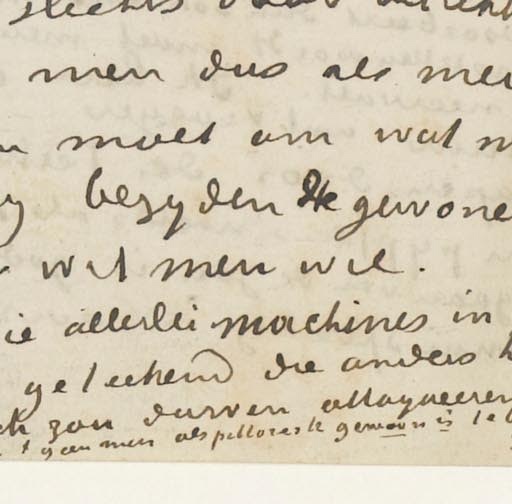 slechts door
men dus als men
moet om wat m
bezyden de gewone
wat men wil.
ie allerlei machines in
geteekend die anders k
ik zou durven attaqueeren
gaan men als pittoresk gewoon is te